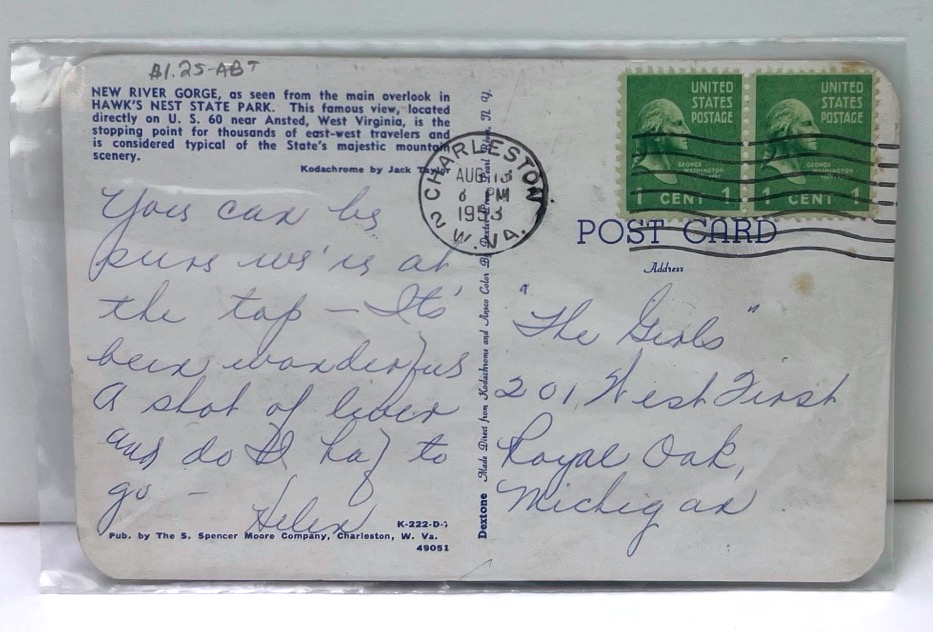 A1.25-ABT
NEW RIVER GORGE, as seen from the main overlook in
HAWK'S NEST STATE PARK. This famous view, located
directly on U. S. 60 near Ansted, West Virginia, is the
stopping point for thousands of east-west travelers and
is considered typical of the State's majestic mountain
scenery.
Kodachrome by Jack Taylor
You can be
sure we're at
the top – It's
been wonderful
A shot of liver
and do I haf to
go –
Helen
K-222-D-
Pub. by The S. Spencer Moore Company, Charleston, W. Va.
49051
Dextone Made Direct from Kodachrome and Ansco Color By Dexter Press, Pearl River, N. Y.
CHARLESTON
AUG 13
8 PM
1953
2 W. VA.
UNITED
STATES
POSTAGE
GEORGE
WASHINGTON
1 CENT 1
UNITED
STATES
POSTAGE
GEORGE
WASHINGTON
1 CENT 1
POST CARD
Address
"The Girls"
201 West First
Royal Oak,
Michigan